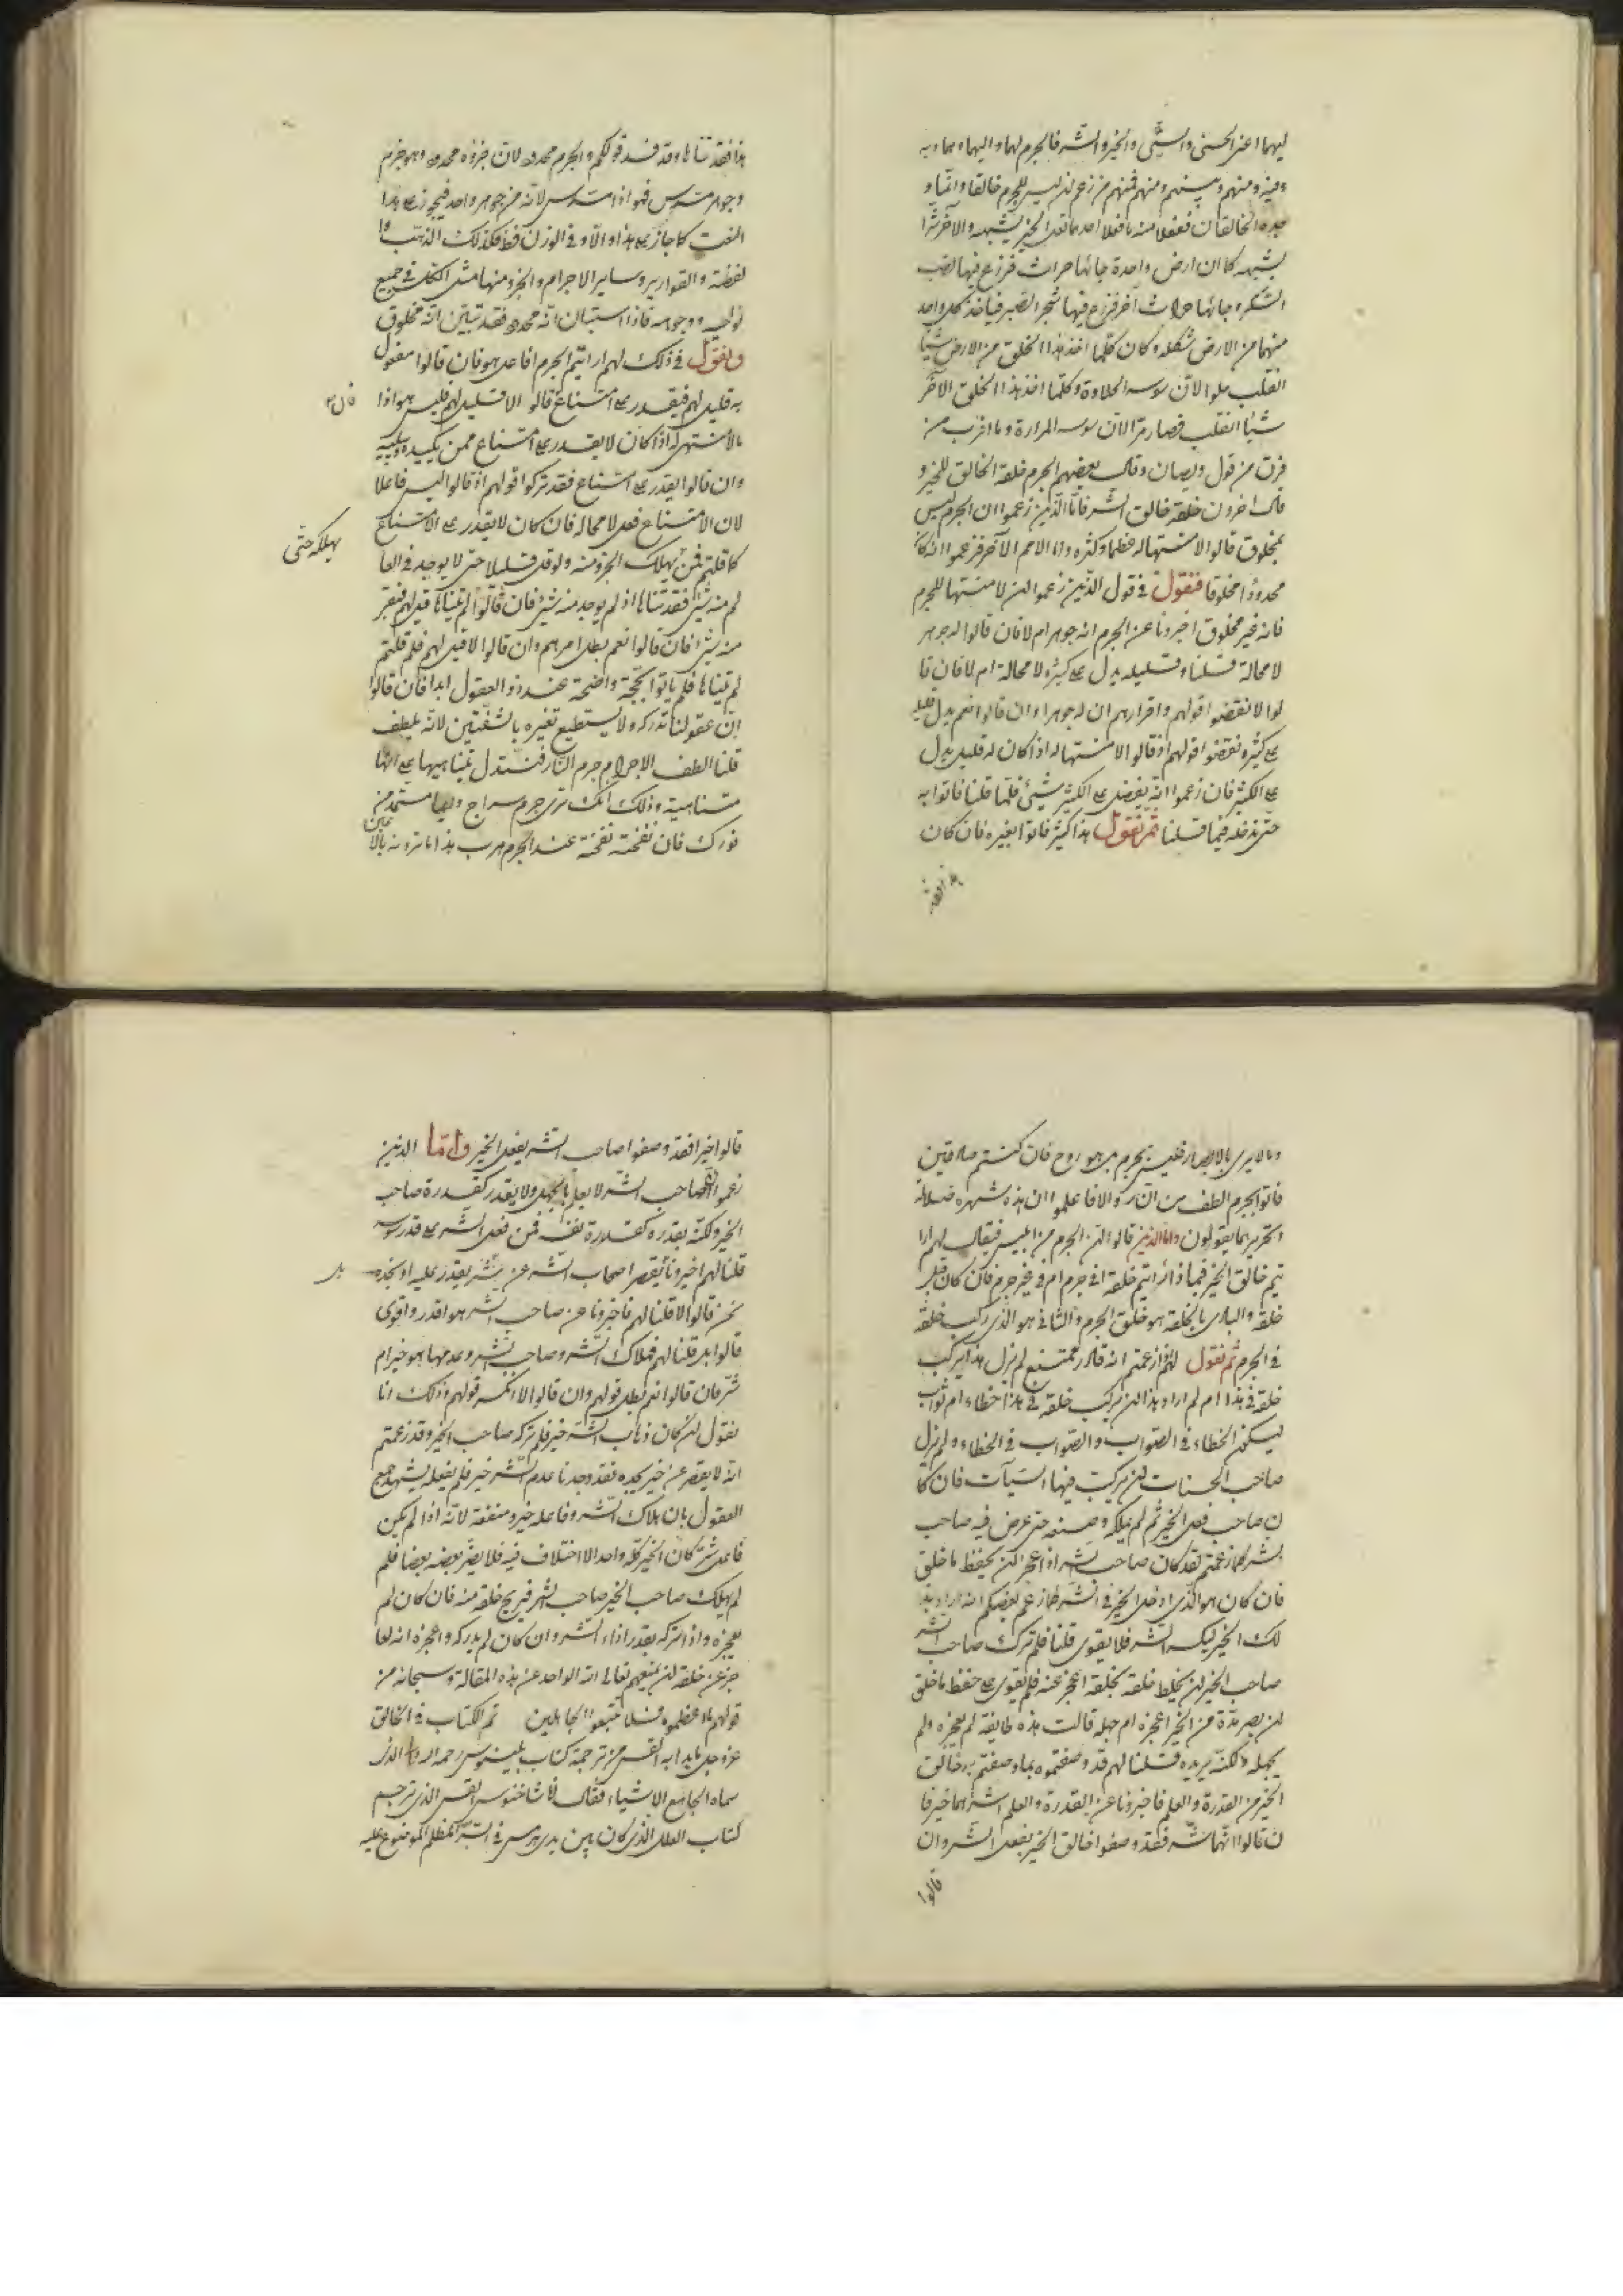 ليهما اعنى الحسنى والسيّئى والخير والشّر فالجرم لهما واليهما وبهما وبه
وفيه ومنهم وبينهم ومنهم فمنهم من زعم ان ليس للجرم خالقا وانّما و
جده الخالقان ففعلا منه ما فعلا احدهما فعل الخير يشبهه والآخر شرّا
يشبهه كما ان ارض واحدة جائها حراث فزرع فيها قصب
السّكر وجائها حراث آخر فزرع فيها شجر الصّبر فياخذ كل واحد
منهما من الارض شكله وكان كلّما اخذ هذا الخلق من الارض شيئا
انقلب حلوا لانّ سوسه الحلاوة وكلّما اخذ هذا الخلق الآخر
شيئا انقلب فصار مرّا لانّ سوسه المرارة وما اقرب من
فرق من قول ديصان وقال بعضهم الجرم خلقه الخالق للخير و
قال اخرون خلقه خالق الشّر فامّا الّذين زعموا ان الجرم ليس
بمخلوق قالوا لا منتها له عظما وكثره وامّا الامم الآخر فزعموا انّه كان
محدودا مخلوقا فنقول فى قول الّذين زعموا ان لا منتها للجرم
فانه غير مخلوق اخبرونا عن الجرم اله جوهر ام لا فان قالوا له جوهر
لا محالة قلنا وقليله يدل على كثيره لا محالة ام لا فان قا
لوا لا نقضوا قولهم واقرارهم ان له جوهرا وان قالوا نعم يدل قليله
على كثيره نقضوا قولهم اذ قالوا لا منتها له اذا كان له قليل يدل
على الكثير فان زعموا انّه يفضل على الكثير شيئ قلنا فاتوا به
حتّى ندخله فيما قلنا ثمّ نقول هذا كثير فاتوا بغيره فان كان
هذا فقد تناها وقد فسد قولكم والجرم محدود لان جزوه محدود وهو جرم
وجوهر متدوس فهو اذا متدوس لانّه من جوهر واحد فيجوز على هذا
النعت كما جاز على هذا والّا وفى الوزن قط فكذلك الذهب وا
لفضّة والقوارير وساير الاجرام والجزو منها مثل الكل فى جميع
نواحيه ووجوهه فاذا استبان انّه محدود فقد تبيّن انّه مخلوق
ونقول فى ذلك لهم ارايتم الجرم افاعل هو فان قالوا مفعول
به قيل لهم فيقدر على امتناع قالوا لا قيل لهم فليس هو اذا
بلا منتهى له اذا كان لا يقدر على امتناع ممن يكيده
وان قالوا يقدر على امتناع فقد تركوا قولهم اذ قالوا ليس فاعلا
لان الامتناع فعل لا محاله فان كان لا يقدر على الامتناع
يهلكه حتّى
كما قلتم فمن يهلك الجزو منه ولو قل قليلا حتى لا يوجد فى العا
لم منه شئ فقد تناها اذ لم يوجد منه شئ فان قالوا لم يتناها قيل لهم فبقى
منه شئ فان قالوا نعم بطل امرهم وان قالوا لا قيل لهم فلم قلتم
لم يتناها فلم ياتوا بحجّة واضحة عند ذو العقول ابدا فان قالوا
انّ عقولنا تدركه ولا يستطيع تغيره بالشفتين لانّه يلطف
قلنا الطف الاجرام جرم النّار فنستدل بتناهيها على انّها
متناهية وذلك انّك ترى جرم سراج وضيا مستمد من
نورك فان نفخته نفخة عند الجرم هرب هذا ما ترونه بالا
وما لا يرى بالابصار فليس بجرم بل هو روح فان كنتم صادقين
فاتوا بجرم الطف من النّار والّا فاعلموا ان هذه شهره ضلالة
وتحرير بما يقولون وامّا الّذين قالوا ان الجرم من ابليس فيقال لهم ارا
يتم خالق الخير فيما ذا ارايتم خلقه افى جرم ام فى غير جرم فان كان قبل
خلقه والبادى بالخلقه هو خلق الجرم والثانى هو الّذى ركب خلقه
فى الجرم ثم نقول لهم ازعمتم انه قادر ممتنع لم نزل هذا يركب
خلقه فى هذا ام لم اراد هذا ان يركب خلقه فى هذا خطاء ام ثواب
ليسكن الخطاء فى الصّواب والصّواب فى الخطاء ولم نزل
صاحب الحسنات ان يركبّ فيها السّيآت فان كا
ن صاحب فعل الخير ثم لم يملكه وصنعه حتى عرض فيه صاحب
الشر كما زعمتم لقد كان صاحب الشر اذا اعجز ان يحفظ ما خلق
فان كان هو الّذى ادخل الخير فى الشّر كما زعم بعضكم انه اراد بذ
لك الخير ليكسر الشّر فلا يقوى قلنا فلم ترك صاحب الشّر
صاحب الخير ان يخلط خلقه بخلقه اعجز عنه فلم يقوى على حفظ ما خلق
ان يصر بدّة من الخير اعجزه ام جهله قالت هذه طايفة لم يعجزه ولم
يجهله ولكنّه يريده قلنا لهم قد وصفتموه بما وصفتم به خالق
الخير من القدرة والعلم فاخبرونا عن القدرة والعلم اشر هما ام خير فا
ن قالوا انّهما شّر فقد وصفوا خالق الخير يفعل الشّر وان
قالوا
قالوا خيرا فقد وصفوا صاحب الشّر يفعل الخير وامّا الذين
زعموا ان صاحب الشّر لا يعلم بالجهل ولا يقدر كقدرة صاحب
الخير ولكنّه يقدره كقدرة نفسه فمن فعل الشّر على قدر سوسه
قلنا لهم اخبرونا أيقصر اصحاب الشّر عن شّر يقدر عليه او يجده بل
نحن قالوا لا قلنا لهم فاخبرونا عن صاحب الشر هو اقدر واقوى
قالوا بل قلنا لهم فهلاك الشّر وصاحب الشّر وعدمها هو خير ام
شرّ فان قالوا نعم بطل قولهم وان قالوا لا انكسر قولهم وذلك انّا
نقول لئن كان ذهاب الشّر خير فلم تركه صاحب الخير وقد زعمتم
انّه لا يقصر عن خير يجده فقد وجدنا عدم الشّر خير فلم يفعله يشهد جميع
العقول بان هلاك الشّر وفاعله خير ومنفعة لانّه اذا لم يكن
فاعل شرّ كان الخير كلّه واحدا لا اختلاف فيه فلا يضرّ بعضه بعضا فلم
لم يهلك صاحب الخير صاحب الشّر فيريح خلقه منه فان كان لم
يعجزه واذا تركه بقدر اذاء الشّر وان كان لم يدركه واعجزه انه لعا
جز عن خلقه ان يمنعهم تعالى الله الواحد عن هذه المقالة وسبحانه من
قولهم ما اعظموه فلا تتبعوا الجاهلين تم الكتاب فى الخالق
عزوجل ما بدا به القس من ترجمة كتاب بلينوس رحمه الله وامّا الذى
سماه الجامع الاشياء فقال لا شاخنوس القس الذى ترجم
كتاب العلل الّذى كان بين يدى هرمس فى السّرب المظلم الموضوع عليه